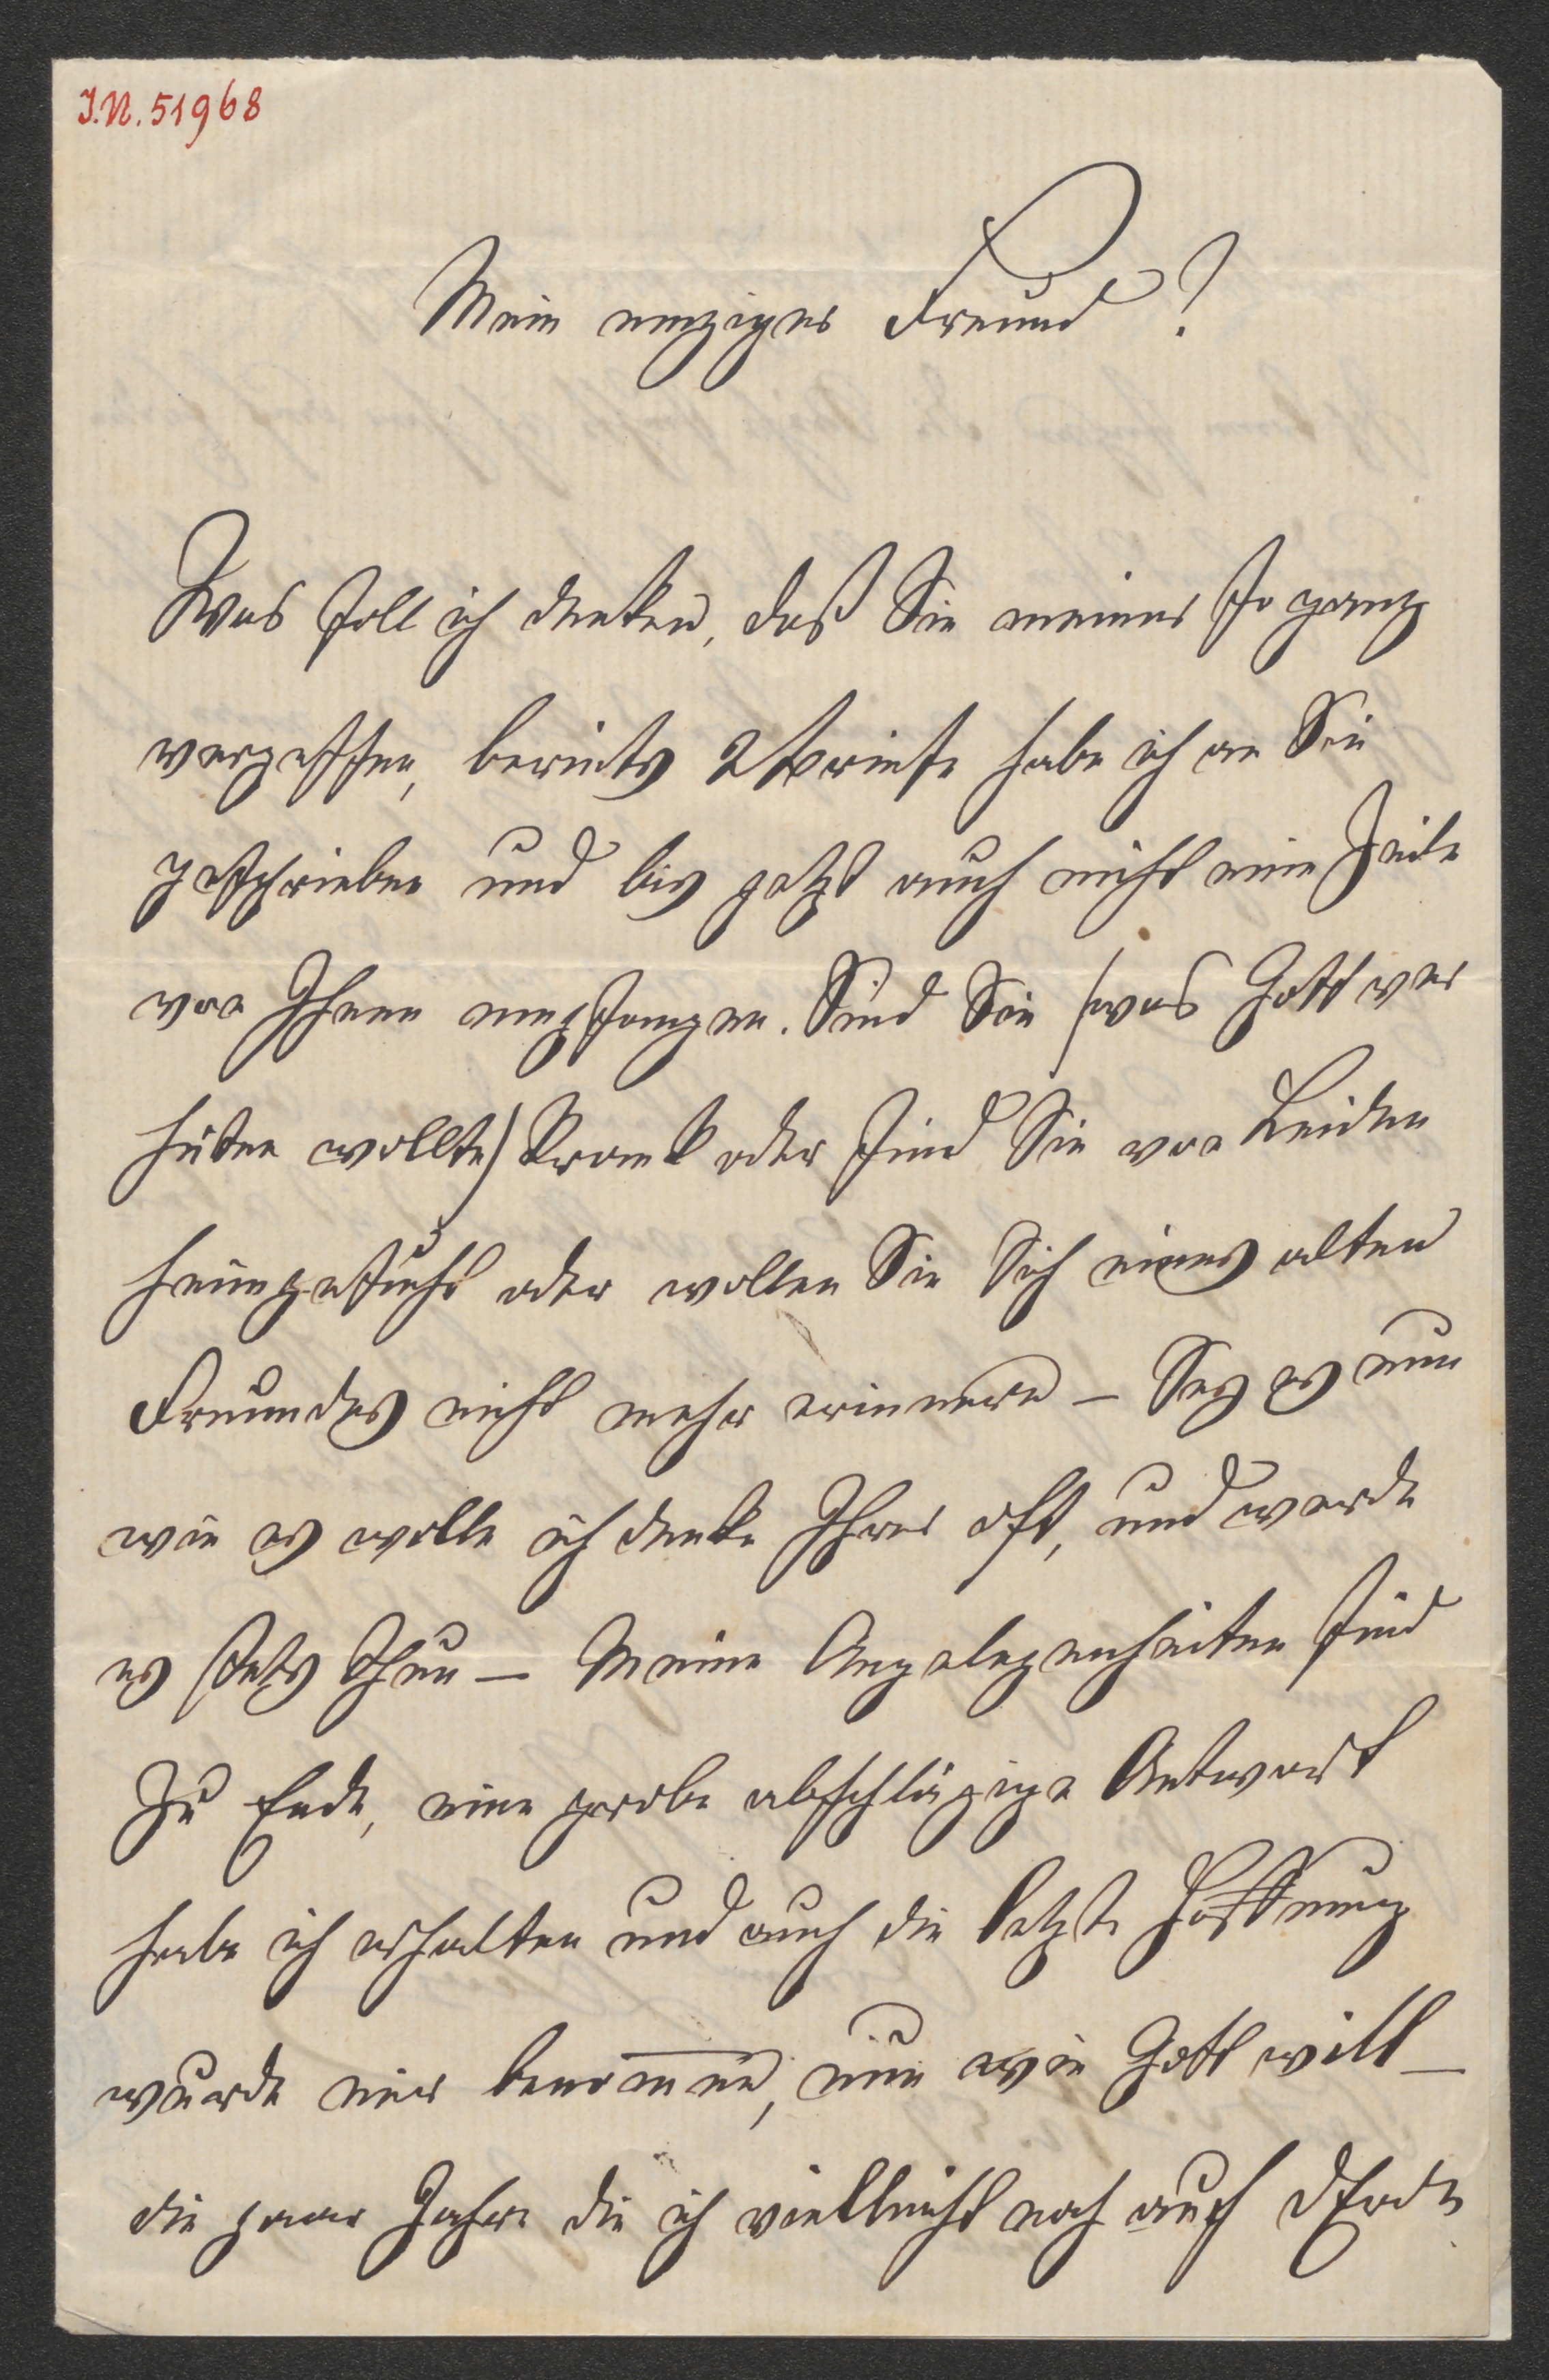 I.N. 51968
Mein einziger Freund!
Was soll ich denken, daß Sie meiner so ganz
vergessen, bereits 2 Briefe habe ich an Sie
geschrieben und bis jetzt auch nicht eine Zeile
von Ihnen empfangen. Sind Sie (was Gott ver
hüten wollte) krank oder sind Sie von Leiden
heimgesucht oder wollen Sie Sich eines alten
Freundes nicht mehr erinnern – Sey es nun
wie es wolle ich denke Ihrer oft, und werde
es stets thun – Meine Angelegenheiten sind
zu Ende, eine grobe abschlägige Antwort
habe ich erhalten und auch die letzte Hoffnung
wurde mir benom̅en, nun wie Gott will –
die paar Jahre die ich vielleicht noch auf d Erde